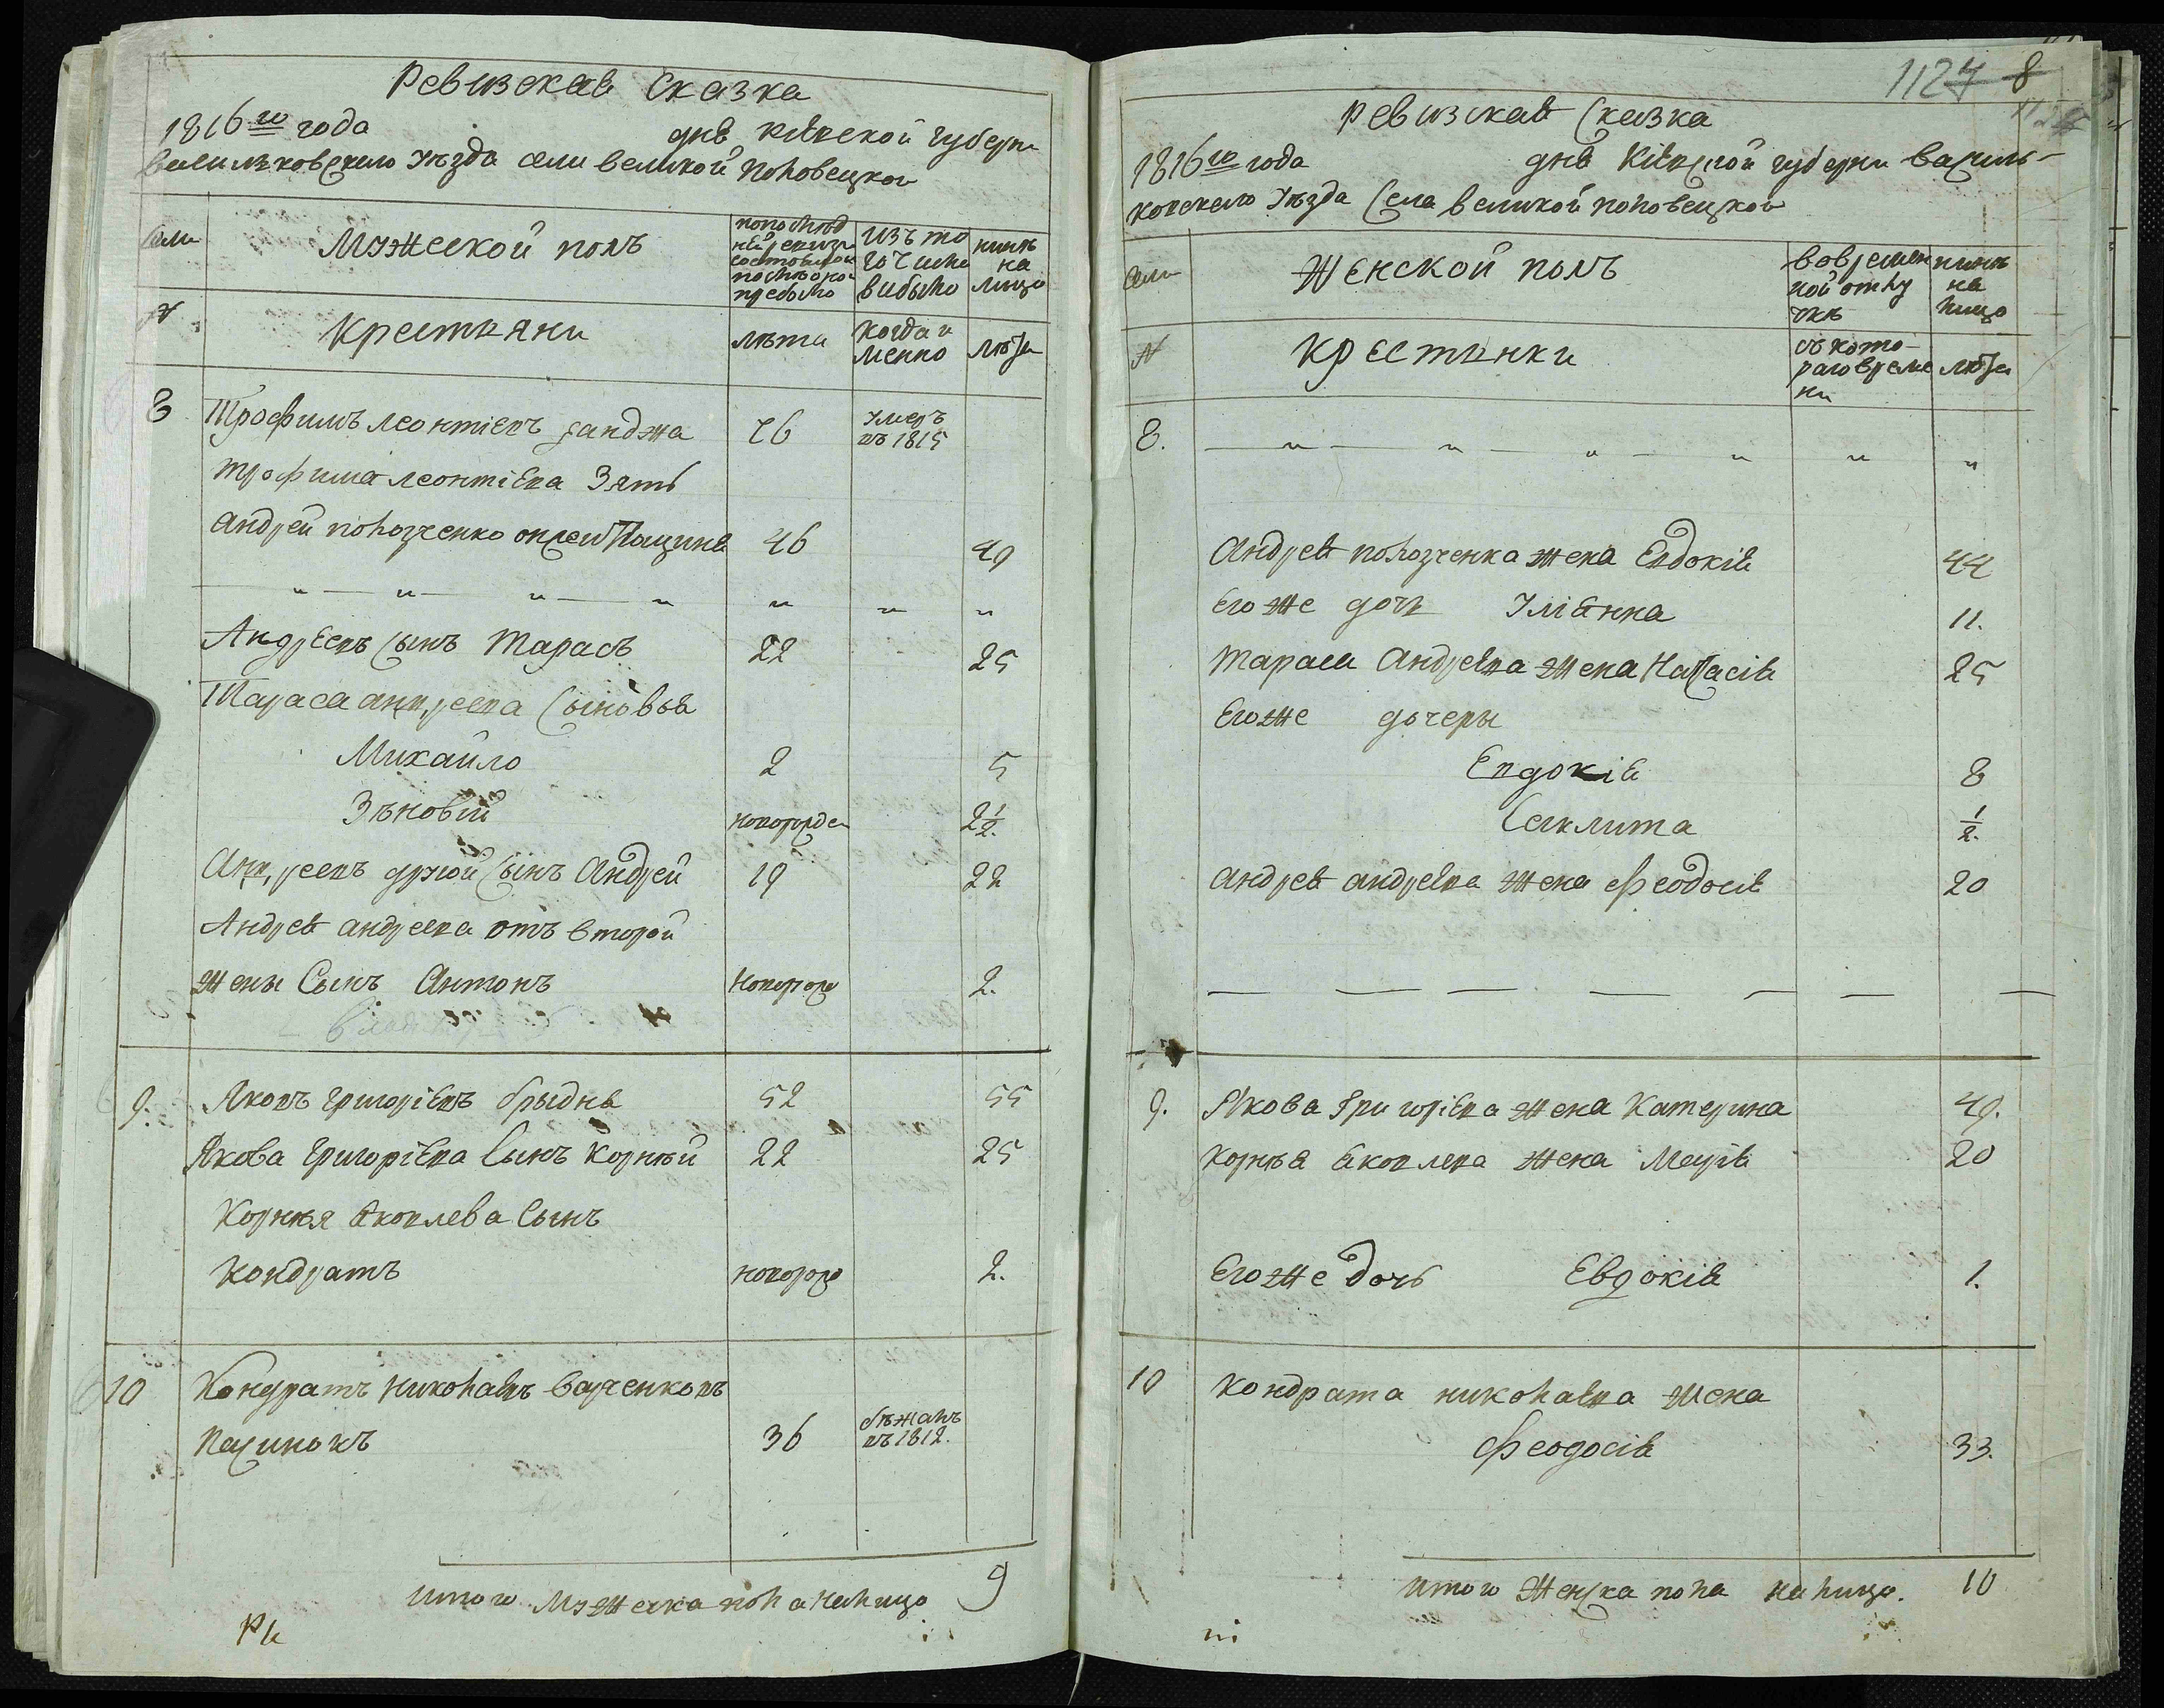 Ревизская Сказка
1816го года дня Кіевской Губерни
Васильковского Уезда села великой Половецкой
Семи
Мужеской полъ
по последней ревизи состояло и после оно пребыло
изъ того числа выбыло
ныне на лицо
№
Крестьяни
лета
когда именно
лета
8 Трофимъ Леонтіевъ 76 умеръ въ 1815
Трофима Леонтіева Зять
Андрей 46 49
— „ — „ — „ — „ „ „ „
Андреевъ Сынъ Тарасъ 22 25
Тараса андреева Сыновья
Михайло 2 5
Зеновій новорожде 2 1/2.
Андреевъ другой Сынъ Андрей 19 22
Андрея андреева отъ второй
жены Сынъ Антонъ новорож 2.
9. Яковъ Григоріевъ брыдня 52 55
Якова Григоріева Сынъ Корней 22 25
Корнея Яковлева Сынъ
Кондратъ новорож 2.
10 Кондратъ Николаевъ
36 бежалъ въ 1812.
Итого мужеска пола налицо 9
1127 8
Ревизская Сказка
1816го года дня Кіевской губерни Василь-
ковского Уезда Села великой половецкой
Семи
Женской полъ
во временной отлучке
ныне на лицо
№
Крестьянки
съ котораго времени
лета
8. — „ — „ — „ — „ „ „
Андрея жена Евдокія 44
Его же дочь Уліянна 11.
Тараса Андреева жена Настасія 25
Его же дочеры
Евдокія 8
Секлита 1/2.
андрея андреева жена Феодосія 20
— — — — — — —
9. Якова Григоріева жена Катерина 49.
Корнея Яковлева жена Марія 20
Его же дочь Евдокія 1.
10 Кондрата николаева жена
Феодосія 33.
Итого Женска пола на лицо. 10